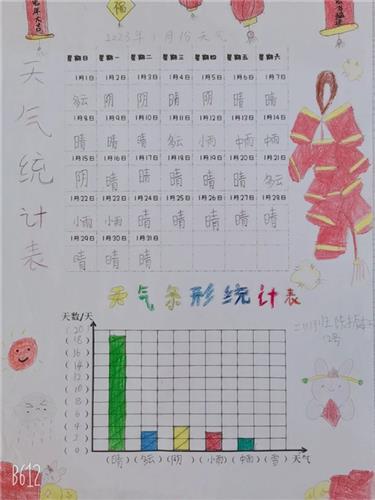 福
2023年1月份天气
天气统计表
星期日 星期一 星期二 星期三 星期四 星期五 星期六
1月1日 1月2日 1月3日 1月4日 1月5日 1月6日 1月7日
多云 阴 阴 晴 晴 晴 晴
1月8日 1月9日 1月10日 1月11日 1月12日 1月13日 1月14日
晴 晴 晴 多云 小雨 中雨 中雨
1月15日 1月16日 1月17日 1月18日 1月19日 1月20日 1月21日
阴 晴 阴 晴 晴 晴 多云
1月22日 1月23日 1月24日 1月25日 1月26日 1月27日 1月28日
小雨 小雨 晴 晴 晴 晴 晴
1月29日 1月30日 1月31日
晴 晴 晴
天气条形统计表
天数/天
(20)
(18)
(16)
(14)
(12)
(10)
(8)
(6)
(4)
(2)
(0)
(晴) (多云) (阴) (小雨) (中雨) (雪) 天气
B612